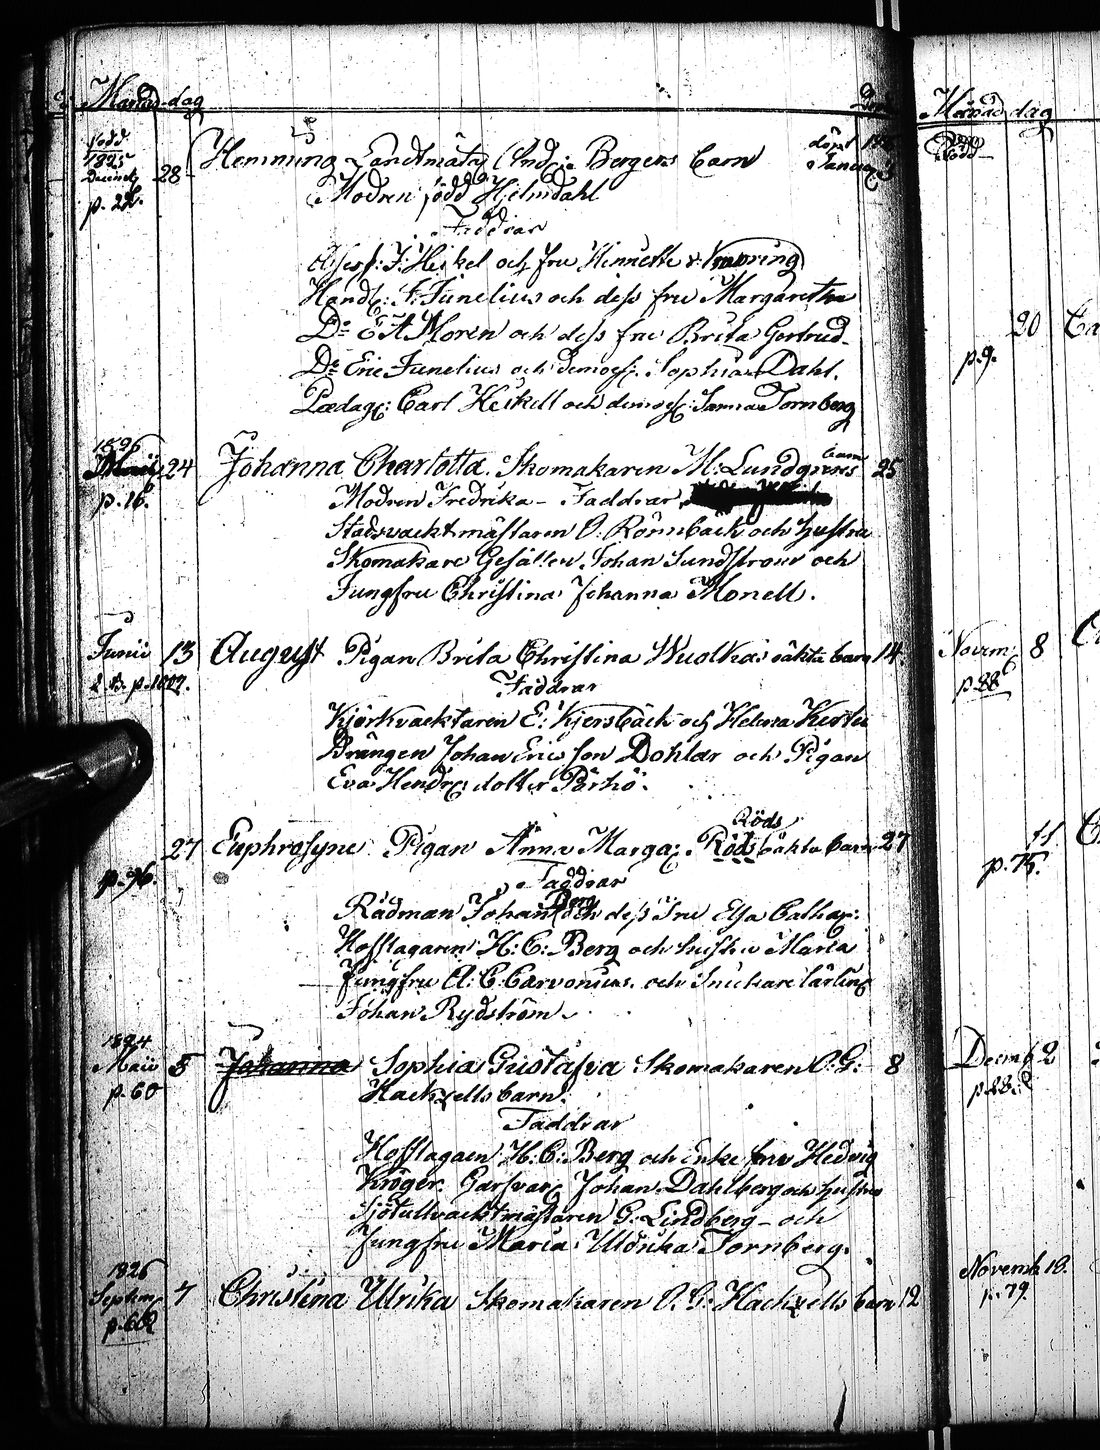 Månad dag
Född
1825
Decemb 28 Hemming Landtmätaj Bergers barn döpt
p. 22. Modren född Hjelmdahl Januarj
Faddrar
J: Heikel och fru
Handl: F. Junelius och dess fru Margaretha
D:o E A Moren och dess fru Brita Gertrud
D:o Eric Junelius och demois: Sophia Dahl.
Pædag: Carl Heikell och demois: Sanna Tornberg
1826
24 Johanna Charlotta. Skomakaren M: Lundgrens barn 25
p. 16. Modren Fredrika - Faddrar
Stadsvacktmästaren O: Rönnbäck och hustru
Skomakare Gesällen Johan Sundström och
Jungfru Christina Johanna Monell.
Junii 13 August Pigan Brita Christina Wuolkas oäkta barn 14.
Faddrar
Kjörkvacktaren E: Kjersbäck och Helena
Drängen Johan Ericsson Dohlar och Pigan
Eva Hendr: dotter Pörhö.
Röds
27 Euphrosyne Pigan Anna Marga: Röds oäkta barn 27
p. 96. Faddrar
Berg
Rådman Johan och dess fru Elsa Cathar:
Hofslagaren H: C: Berg och hustru Maria
Jungfru A: C. Carvonius. och Snickare lärling
Johan Rydström.
1824
Maii 5 Johanna Sophia Gustafva Skomakaren O. G: 8
p. 60 Hackzells barn.
Faddrar
Hofslagaen H: C: Berg och Enke fru Hedvig
Kröger. Garfvar: Johan Dahlberg och hustru
Sjötullvacktmästaren G: Lindberg - och
Jungfru Maria Ulrika Tornberg.
1826
Septem: 7 Christina Ulrika Skomakaren O. G: Hackzells barn 12
p. 60
Månad dag
Född
20
p. 9.
Novem: 8
p. 88
11.
p. 75.
Decemb 2
p. 88.
Novemb 18.
p. 79.